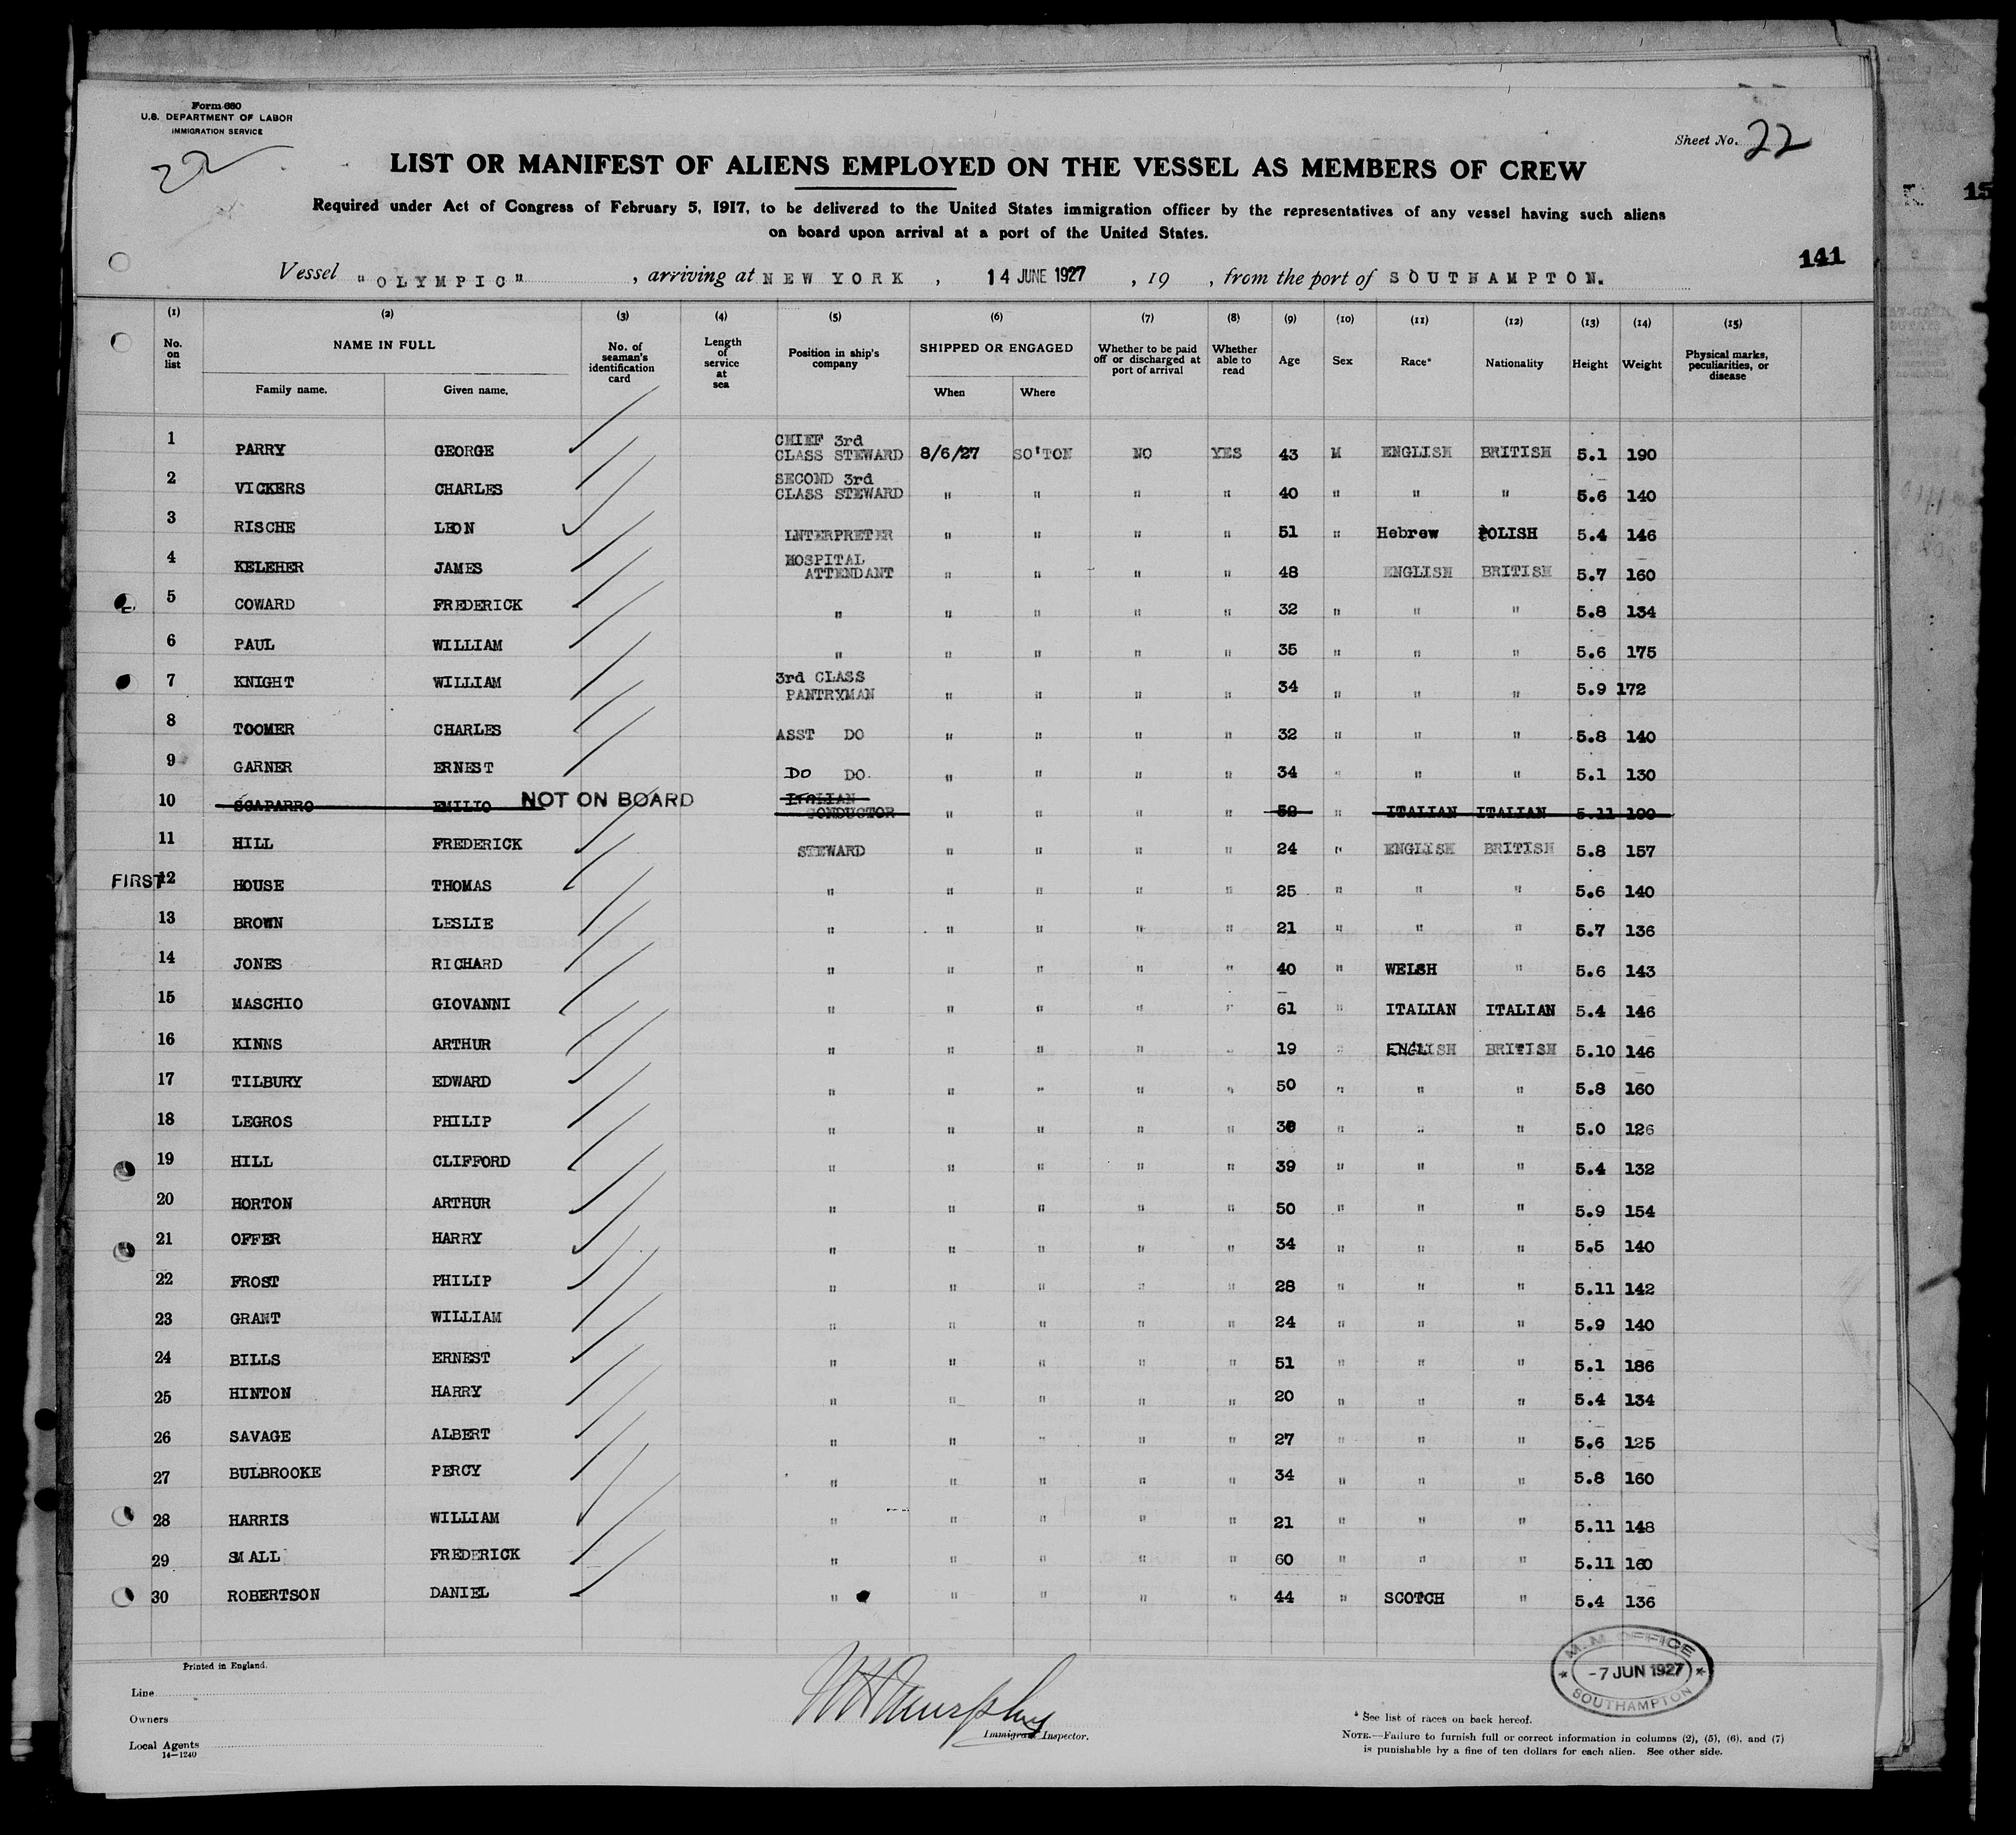 Form 680
U.S. DEPARTMENT OF LABOR
IMMIGRATION SERVICE
22
Sheet No. 22
LIST OR MANIFEST OF ALIENS EMPLOYED ON THE VESSEL AS MEMBERS OF CREW
Required under Act of Congress of February 5, 1917, to be delivered to the United States immigration officer by the representatives of any vessel having such aliens
on board upon arrival at a port of the United States.
15
141
Vessel "OLYMPIC", arriving at NEW YORK, 14 JUNE 1927, 19 , from the port of SOUTHAMPTON.
(1) (2) (3) (4) (5) (6) (7) (8) (9) (10) (11) (12) (13) (14) (15)
No. on list NAME IN FULL Family name. Given name. No. of seaman's identification card Length of service at sea Position in ship's company SHIPPED OR ENGAGED When Where Whether to be paid off or discharged at port of arrival Whether able to read Age Sex Race* Nationality Height Weight Physical marks, peculiarities, or disease
1 PARRY GEORGE CHIEF 3rd CLASS STEWARD 8/6/27 SO'TON NO YES 43 M ENGLISH BRITISH 5.1 190
2 VICKERS CHARLES SECOND 3rd CLASS STEWARD " " " " 40 " " " 5.6 140
3 RISCHE LEON INTERPRETER " " " " 51 " Hebrew POLISH 5.4 146
4 KELEHER JAMES HOSPITAL ATTENDANT " " " " 48 ENGLISH BRITISH 5.7 160
5 COWARD FREDERICK " " " " " 32 " " " 5.8 134
6 PAUL WILLIAM " " " " " 35 " " " 5.6 175
7 KNIGHT WILLIAM 3rd CLASS PANTRYMAN " " " " 34 " " " 5.9 172
8 TOOMER CHARLES ASST DO " " " " 32 " " " 5.8 140
9 GARNER ERNEST DO DO. " " " " 34 " " " 5.1 130
10 SCAPARRO EMILIO NOT ON BOARD ITALIAN CONDUCTOR " " " " " ITALIAN ITALIAN 5.11 190
11 HILL FREDERICK STEWARD " " " " 24 " ENGLISH BRITISH 5.8 157
FIRST 12 HOUSE THOMAS " " " " " 25 " " " 5.6 140
13 BROWN LESLIE " " " " " 21 " " " 5.7 136
14 JONES RICHARD " " " " " 40 " WELSH " 5.6 143
15 MASCHIO GIOVANNI " " " " " 61 " ITALIAN ITALIAN 5.4 146
16 KINNS ARTHUR " " " " " 19 " ENGLISH BRITISH 5.10 146
17 TILBURY EDWARD " " " " " 50 " " " 5.8 160
18 LEGROS PHILIP " " " " " " " " 5.0 126
19 HILL CLIFFORD " " " " " 39 " " " 5.4 132
20 HORTON ARTHUR " " " " " 50 " " " 5.9 154
21 OFFER HARRY " " " " " 34 " " " 5.5 140
22 FROST PHILIP " " " " " 28 " " " 5.11 142
23 GRANT WILLIAM " " " " " 24 " " " 5.9 140
24 BILLS ERNEST " " " " " 51 " " " 5.1 186
25 HINTON HARRY " " " " " 20 " " " 5.4 134
26 SAVAGE ALBERT " " " " " 27 " " " 5.6 125
27 BULBROOKE PERCY " " " " " 34 " " " 5.8 160
28 HARRIS WILLIAM " " " " " 21 " " " 5.11 148
29 SMALL FREDERICK " " " " " 60 " " " 5.11 160
30 ROBERTSON DANIEL " " " " " 44 " SCOTCH " 5.4 136
Printed in England.
M.M. OFFICE
-7 JUN 1927
SOUTHAMPTON
Line
Owners
Local Agents
14—1240
Murphy
Immigrant Inspector.
* See list of races on back hereof.
NOTE.—Failure to furnish full or correct information in columns (2), (5), (6), and (7)
is punishable by a fine of ten dollars for each alien. See other side.